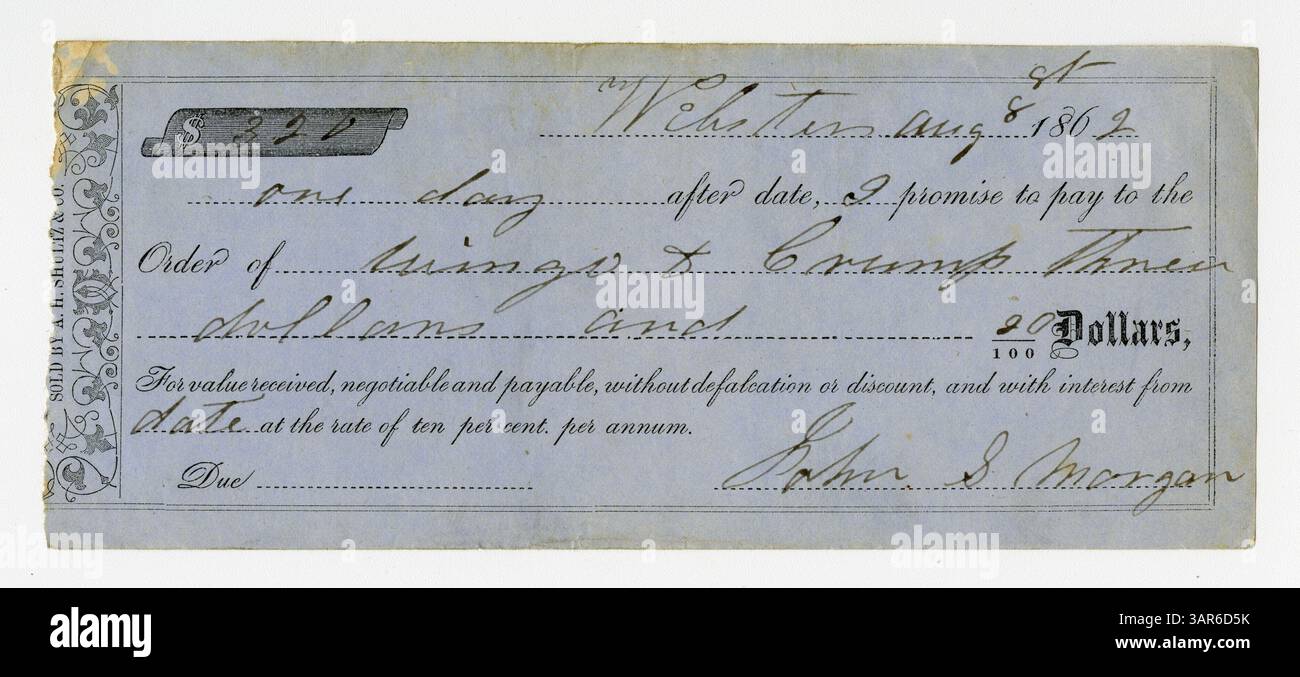 st
Webster aug 8 1862
$ 3 20
one day after date, I promise to pay to the
Order of wingo & Crump Three
dollars and 20/100 Dollars,
For value received, negotiable and payable, without defalcation or discount, and with interest from
date at the rate of ten per cent. per annum.
Due John S Morgan
SOLD BY A. H. SHULTZ & CO.
alamy
alamy
alamy
alamy
alamy
alamy
Image ID: 3AR6D5K
www.alamy.com